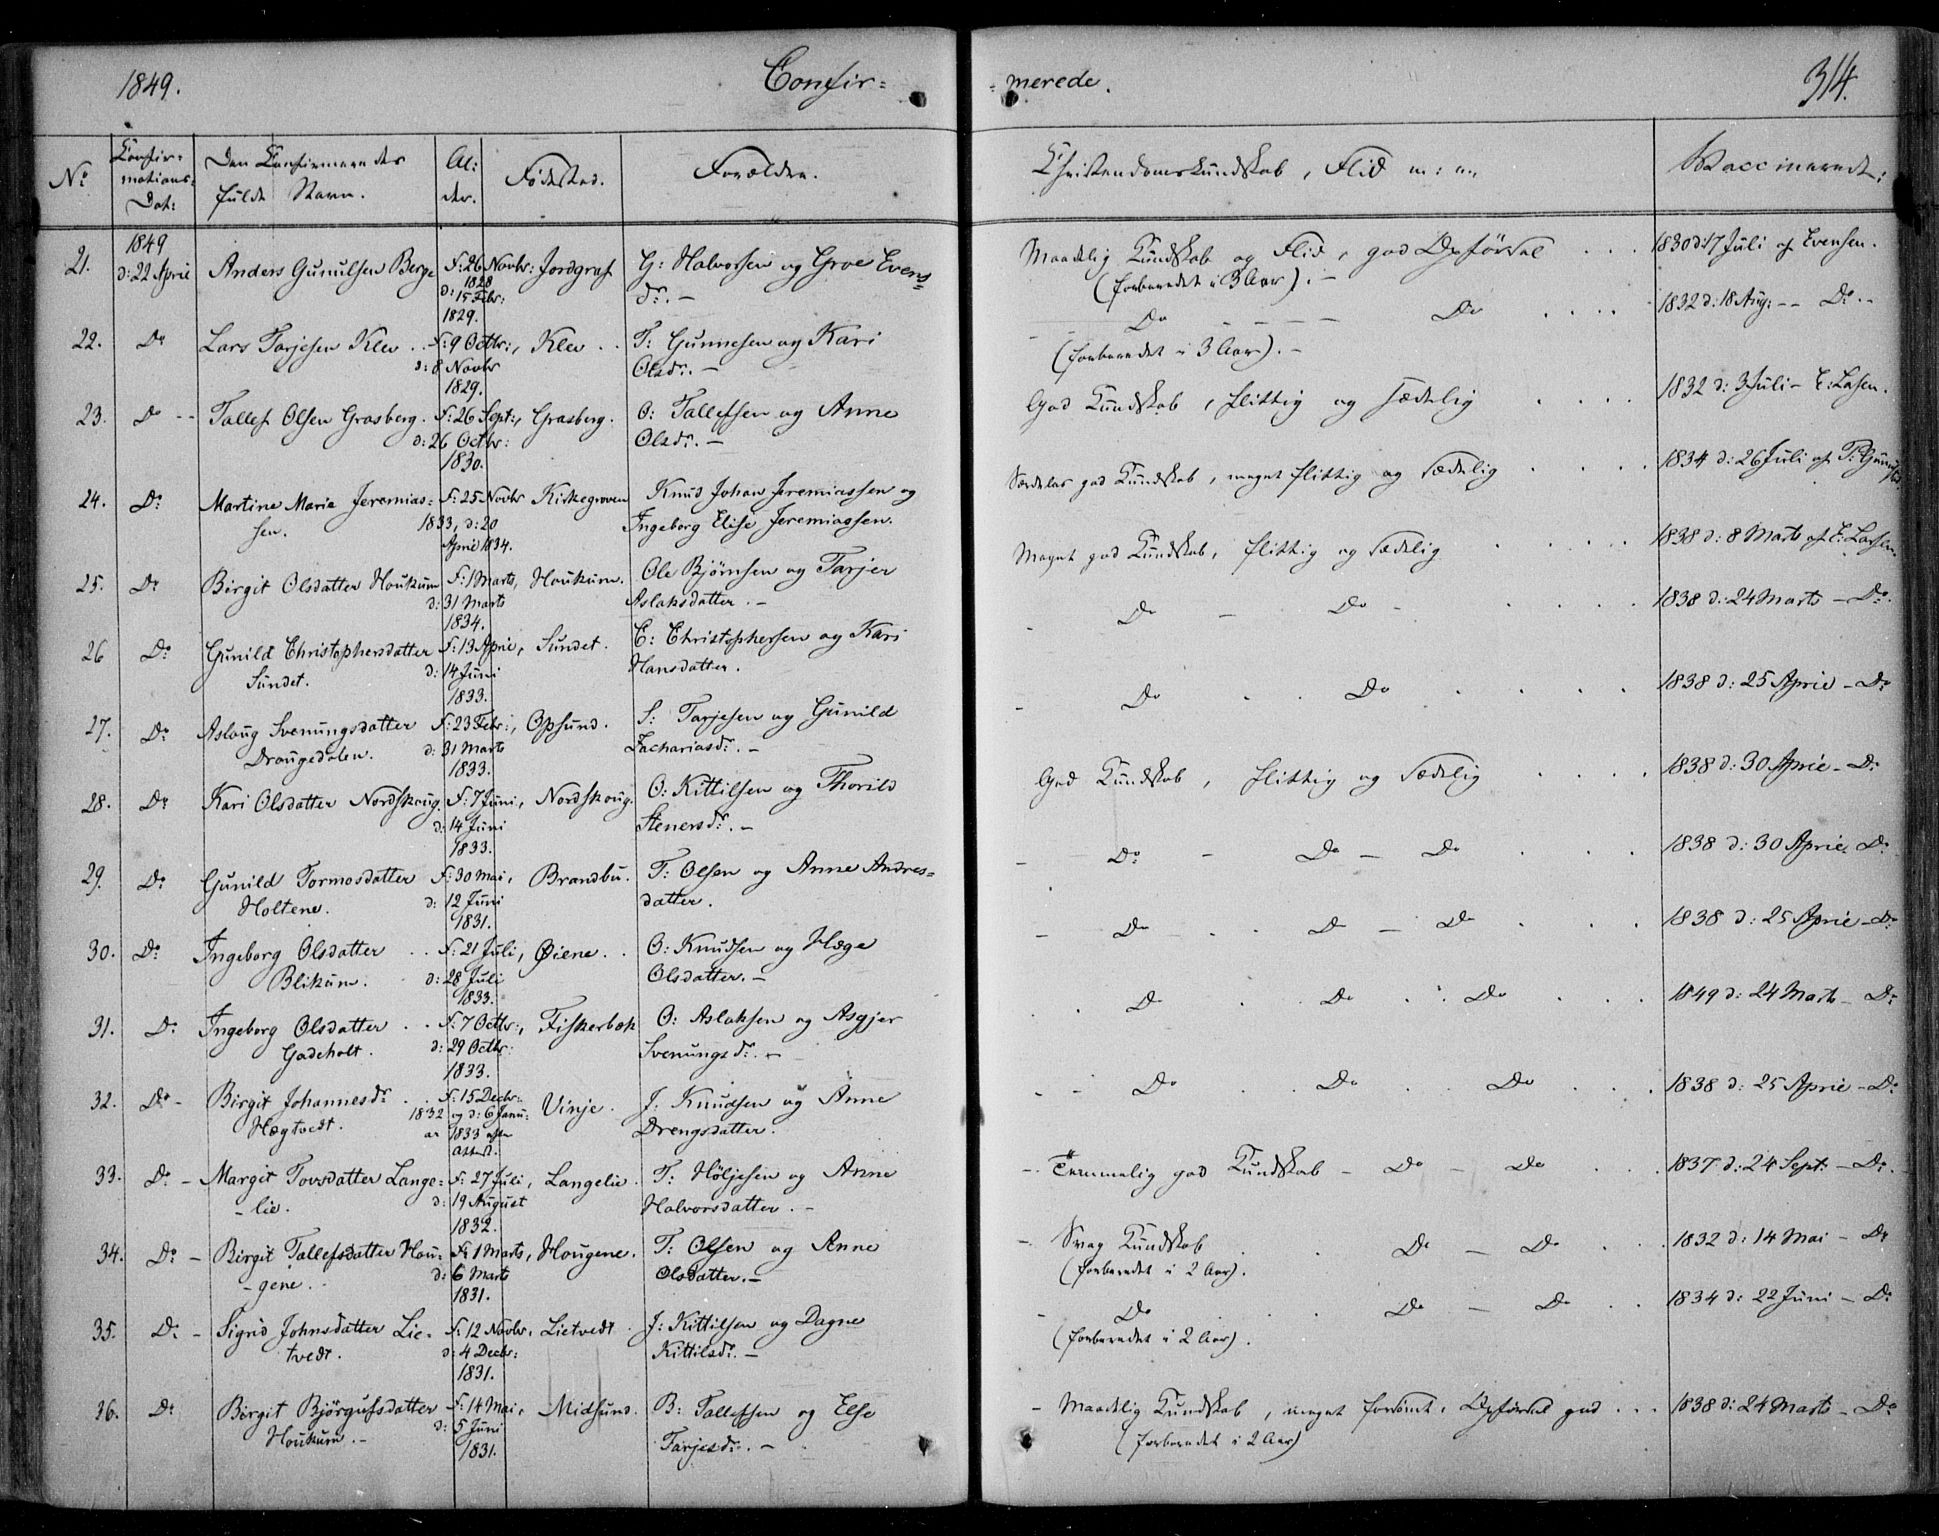 1849. Confir= =merede. 314.
No Confir= mations= Dat: Den Confirmeredes fulde Navn. Al: der. Fødested. Forældre. Christendomskundskab, Flid m: m. Vaccinerede:
21. 1849 d: 22 April Anders Gunulsen Berge F: 26 Novbr: 1828 d: 15 Febr: 1829. Jordgraf G: Halvorsen og Groe Evens= dr. — Maadelig Kundskab og Flid, god Opførsel . . . (forberedet i 3 Aar). — 1830 d: 17 Juli af Evensen.
22. Do Lars Tarjesen Klev . . F: 9 Octbr:, d: 8 Novbr 1829. Klev . . T: Gunnesen og Kari Olsdr. — Do — — — Do . . . . (forberedet i 3 Aar). — 1832 d: 18 Aug: — — Do. —
23. Do — Tallef Olsen Grasberg. F: 26 Sept:, d: 26 Octbr: 1830. Grasberg. O: Tallefsen og Anne Olsdr. — God Kundskab, flittig og sædelig . . . . 1832 d: 3 Juli — E: Lasen.
24. Do Martine Marie Jeremias= sen. F: 25 Novbr 1833, d: 20 April 1834. Kirkegroven Knud Johan Jeremiassen og Ingeborg Elise Jeremiassen. Særdeles god Kundskab, meget flittig og sædelig . . . . 1834 d: 26 Juli af
25. Do Birgit Olsdatter Houkum F: 1 Marts, d: 31 Marts 1834. Houkum. Ole Bjørnsen og Tarjer Aslaksdatter. — Meget god Kundskab, flittig og sædelig . . . . 1838 d: 8 Marts af E: Larsen.
26 Do Gunild Christophersdatter Sundet. F: 13 April, d: 14 Juni 1833. Sundet. C: Christophersen og Kari Hansdatter. - Do — Do — . . . . 1838 d: 24 Marts — Do.
27. Do Aslaug Svenungsdatter Drougedalen. F: 23 Febr:, d: 31 Marts 1833. Opsund. S: Tarjesen og Gunild Zachariasdr. — - Do . . Do . . . . 1838 d: 25 April — Do
28. Do Kari Olsdatter Nordskoug. F: 7 Juni, d: 14 Juni 1833. Nordskoug. O: Kittilsen og Thorild Stenersdr. — God Kundskab, flittig og sædelig . . . . 1838 d: 30 April — Do
29. Do Gunild Tormosdatter Holtene. F: 30 Mai, d: 12 Juni 1831. Brandbu. T: Olsen og Anne Andres= datter. — Do — Do — Do . . . 1838 d: 30 April. Do
30. Do Ingeborg Olsdatter . . Blikum. F: 21 Juli, d: 28 Juli 1833. Øiene . . O: Knudsen og Hæge Olsdatter. — — Do . . Do — Do . . . 1838 d: 25 April — Do
31. Do Ingeborg Olsdatter . . Gadeholt. F: 7 Octbr:, d: 29 Octbr: 1833. Fiskerbæk O: Aslaksen og Asgjer Svenungsdr. — . . Do . Do . . Do . . . 1849 d: 24 Marts — Do
32. Do — Birgit Johannesdr . . Hægtvedt. F: 15 Decbr: 1832 og d: 6 Janu= ar 1833 efter Attest. Vinje. J: Knudsen og Anne Drengsdatter. - - Do . . Do . . Do . . . 1838 d: 25 April — Do
33. Do — Margit Tovsdatter Lange= -lie. F: 27 Juli, d: 19 August 1832. Langelie. T: Höljesen og Anne Halvorsdatter. — — Temmelig god Kundskab — Do — Do . . . 1837 d: 24 Sept: — Do.
34. Do — Birgit Tallefsdatter Hou= -gene. F: 1 Marts, d: 6 Marts 1831. Hougene. T: Olsen og Anne Olsdatter. — — Svag Kundskab . . Do — Do . . . (forberedet i 2 Aar). 1832 d: 14 Mai — Do
35. Do — Sigrid Johnsdatter Lie= tvedt. F: 12 Novbr. d: 4 Decbr: 1831. Lietvedt . J: Kittilsen og Dagne Kittilsdr. — - Do . . Do — Do . . (forberedet i 2 Aar). 1834 d: 22 Juni — Do
36. Do Birgit Bjørgufsdatter Houkum. — F: 14 Mai, d: 5 Juni 1831. Midsund. B: Tallefsen og Else Tarjesdr. — — Maadelig Kundskab, meget forsømt. Opførsel god . . . (forberedet i 2 Aar) 1838 d: 24 Marts — Do